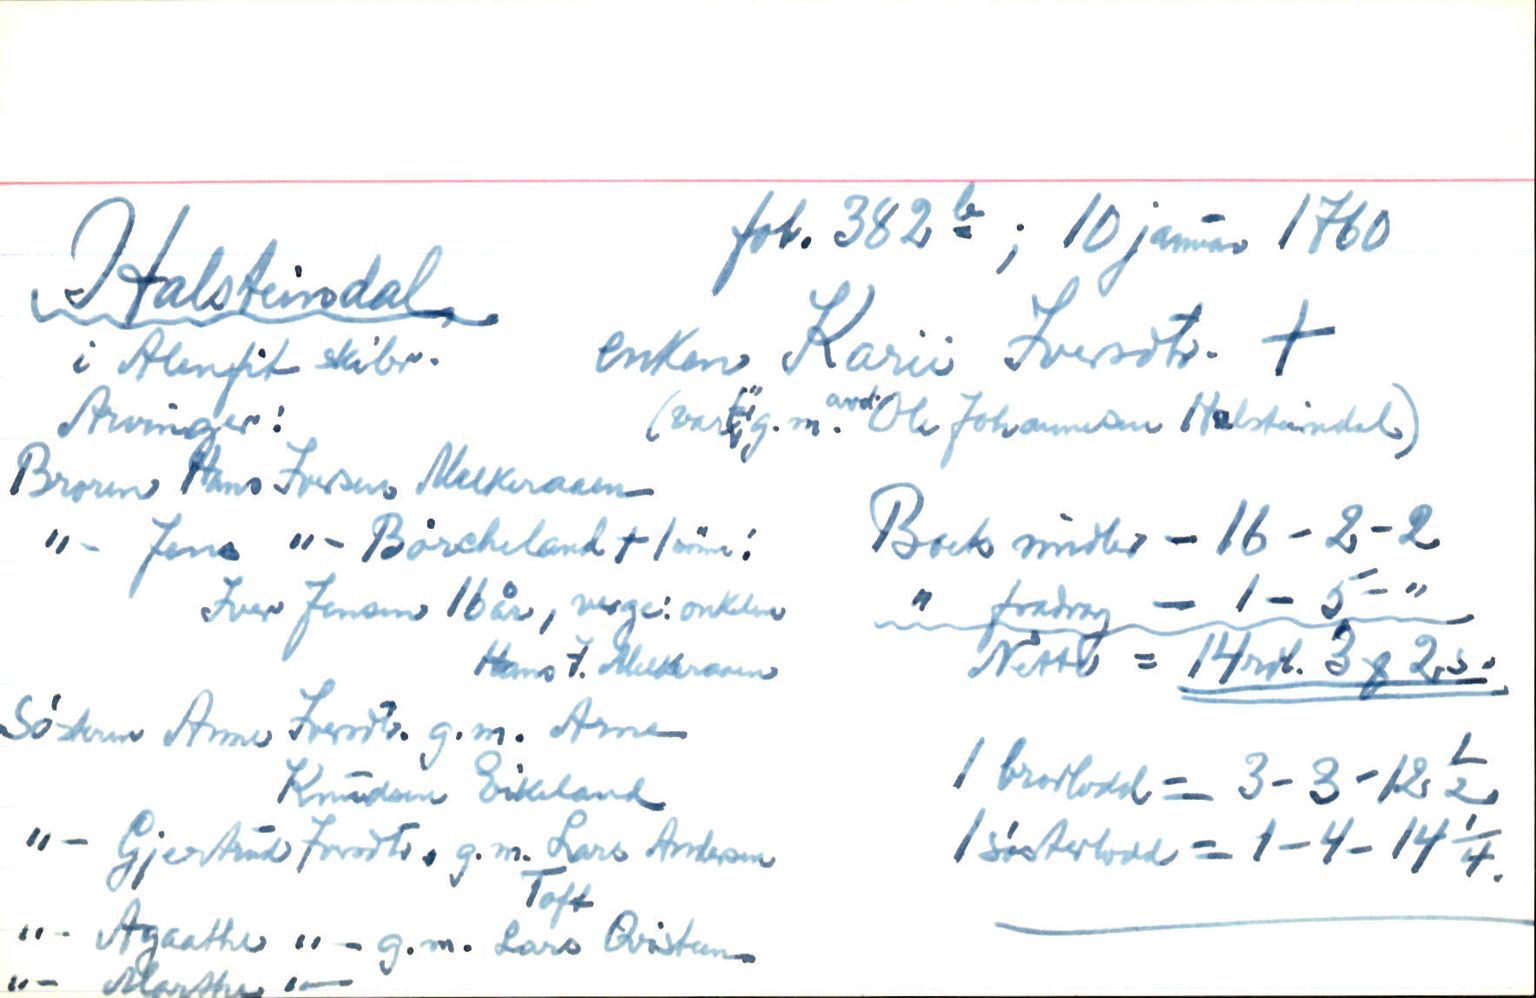 fol. 382 b ; 10 januar 1760
Halsteindal
i Alenfit skibr.
enken Karii Iversdtr. †
(var g.m. avd. Ole Johannesen Halsteindal)
Arvinger:
Broren Hans Iversen Melkeraaen
"- Jens "- Börcheland † 1 sön:
Iver Jensen 16 år, verge: onkelen
Hans I. Melkeraaen
Søsteren Anne Iversdtr. g.m. Arne
Knudsen Eikeland
"- Gjertrud Iversdtr., g.m. Lars Andersen
Toft
"- Agaathe "- g.m. Lars Qvisteen
"- Marthe "-
Boets midler - 16 - 2 - 2
" fradrag - 1 - 5 - "
Netto = 14 rdl. 3 q 2 s.
1 brorlodd = 3 - 3 - 12 1/2
1 søsterlodd = 1 - 4 - 14 1/4.